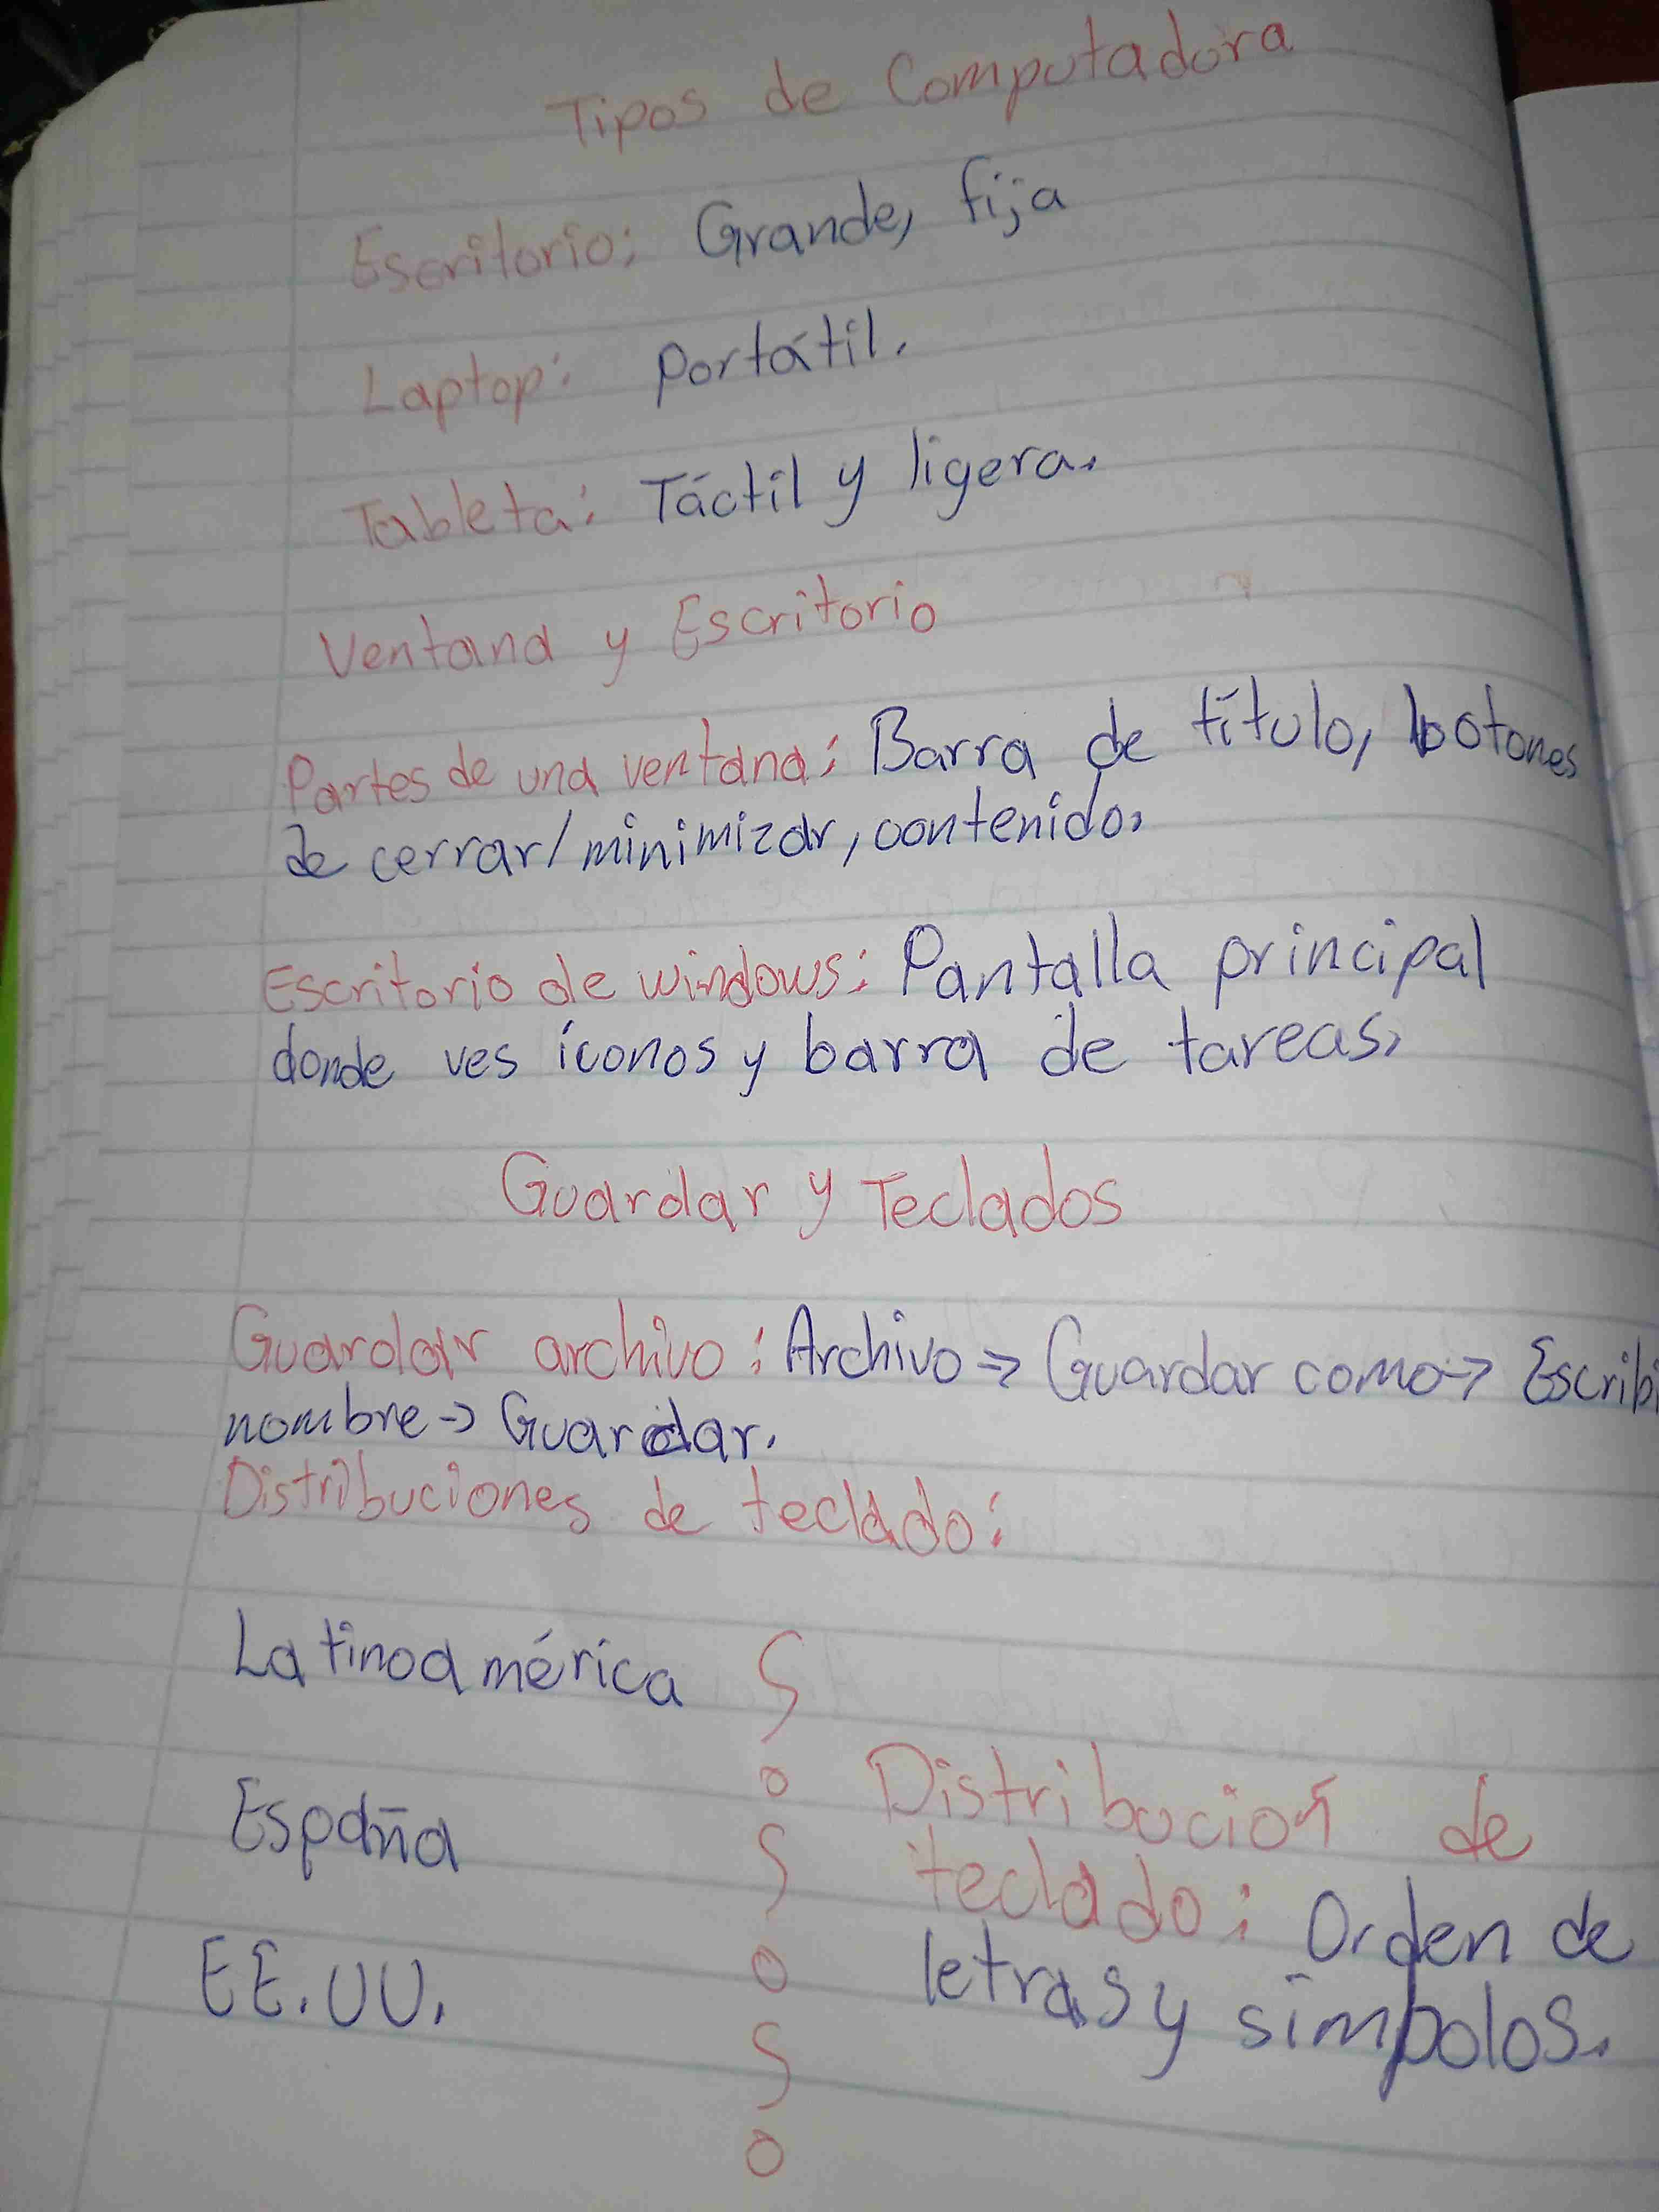 Tipos de Computadora
Escritorio: Grande, fija
Laptop: Portátil.
Tableta: Táctil y ligera.
Ventana y Escritorio
Partes de una ventana: Barra de título, botones
de cerrar/minimizar, contenido.
Escritorio de windows: Pantalla principal
donde ves íconos y barra de tareas.
Guardar y Teclados
Guardar archivo: Archivo → Guardar como → Escribi
nombre → Guardar.
Distribuciones de teclado:
Latinoamérica
España
EE.UU.
Distribución de
teclado: Orden de
letras y símbolos.